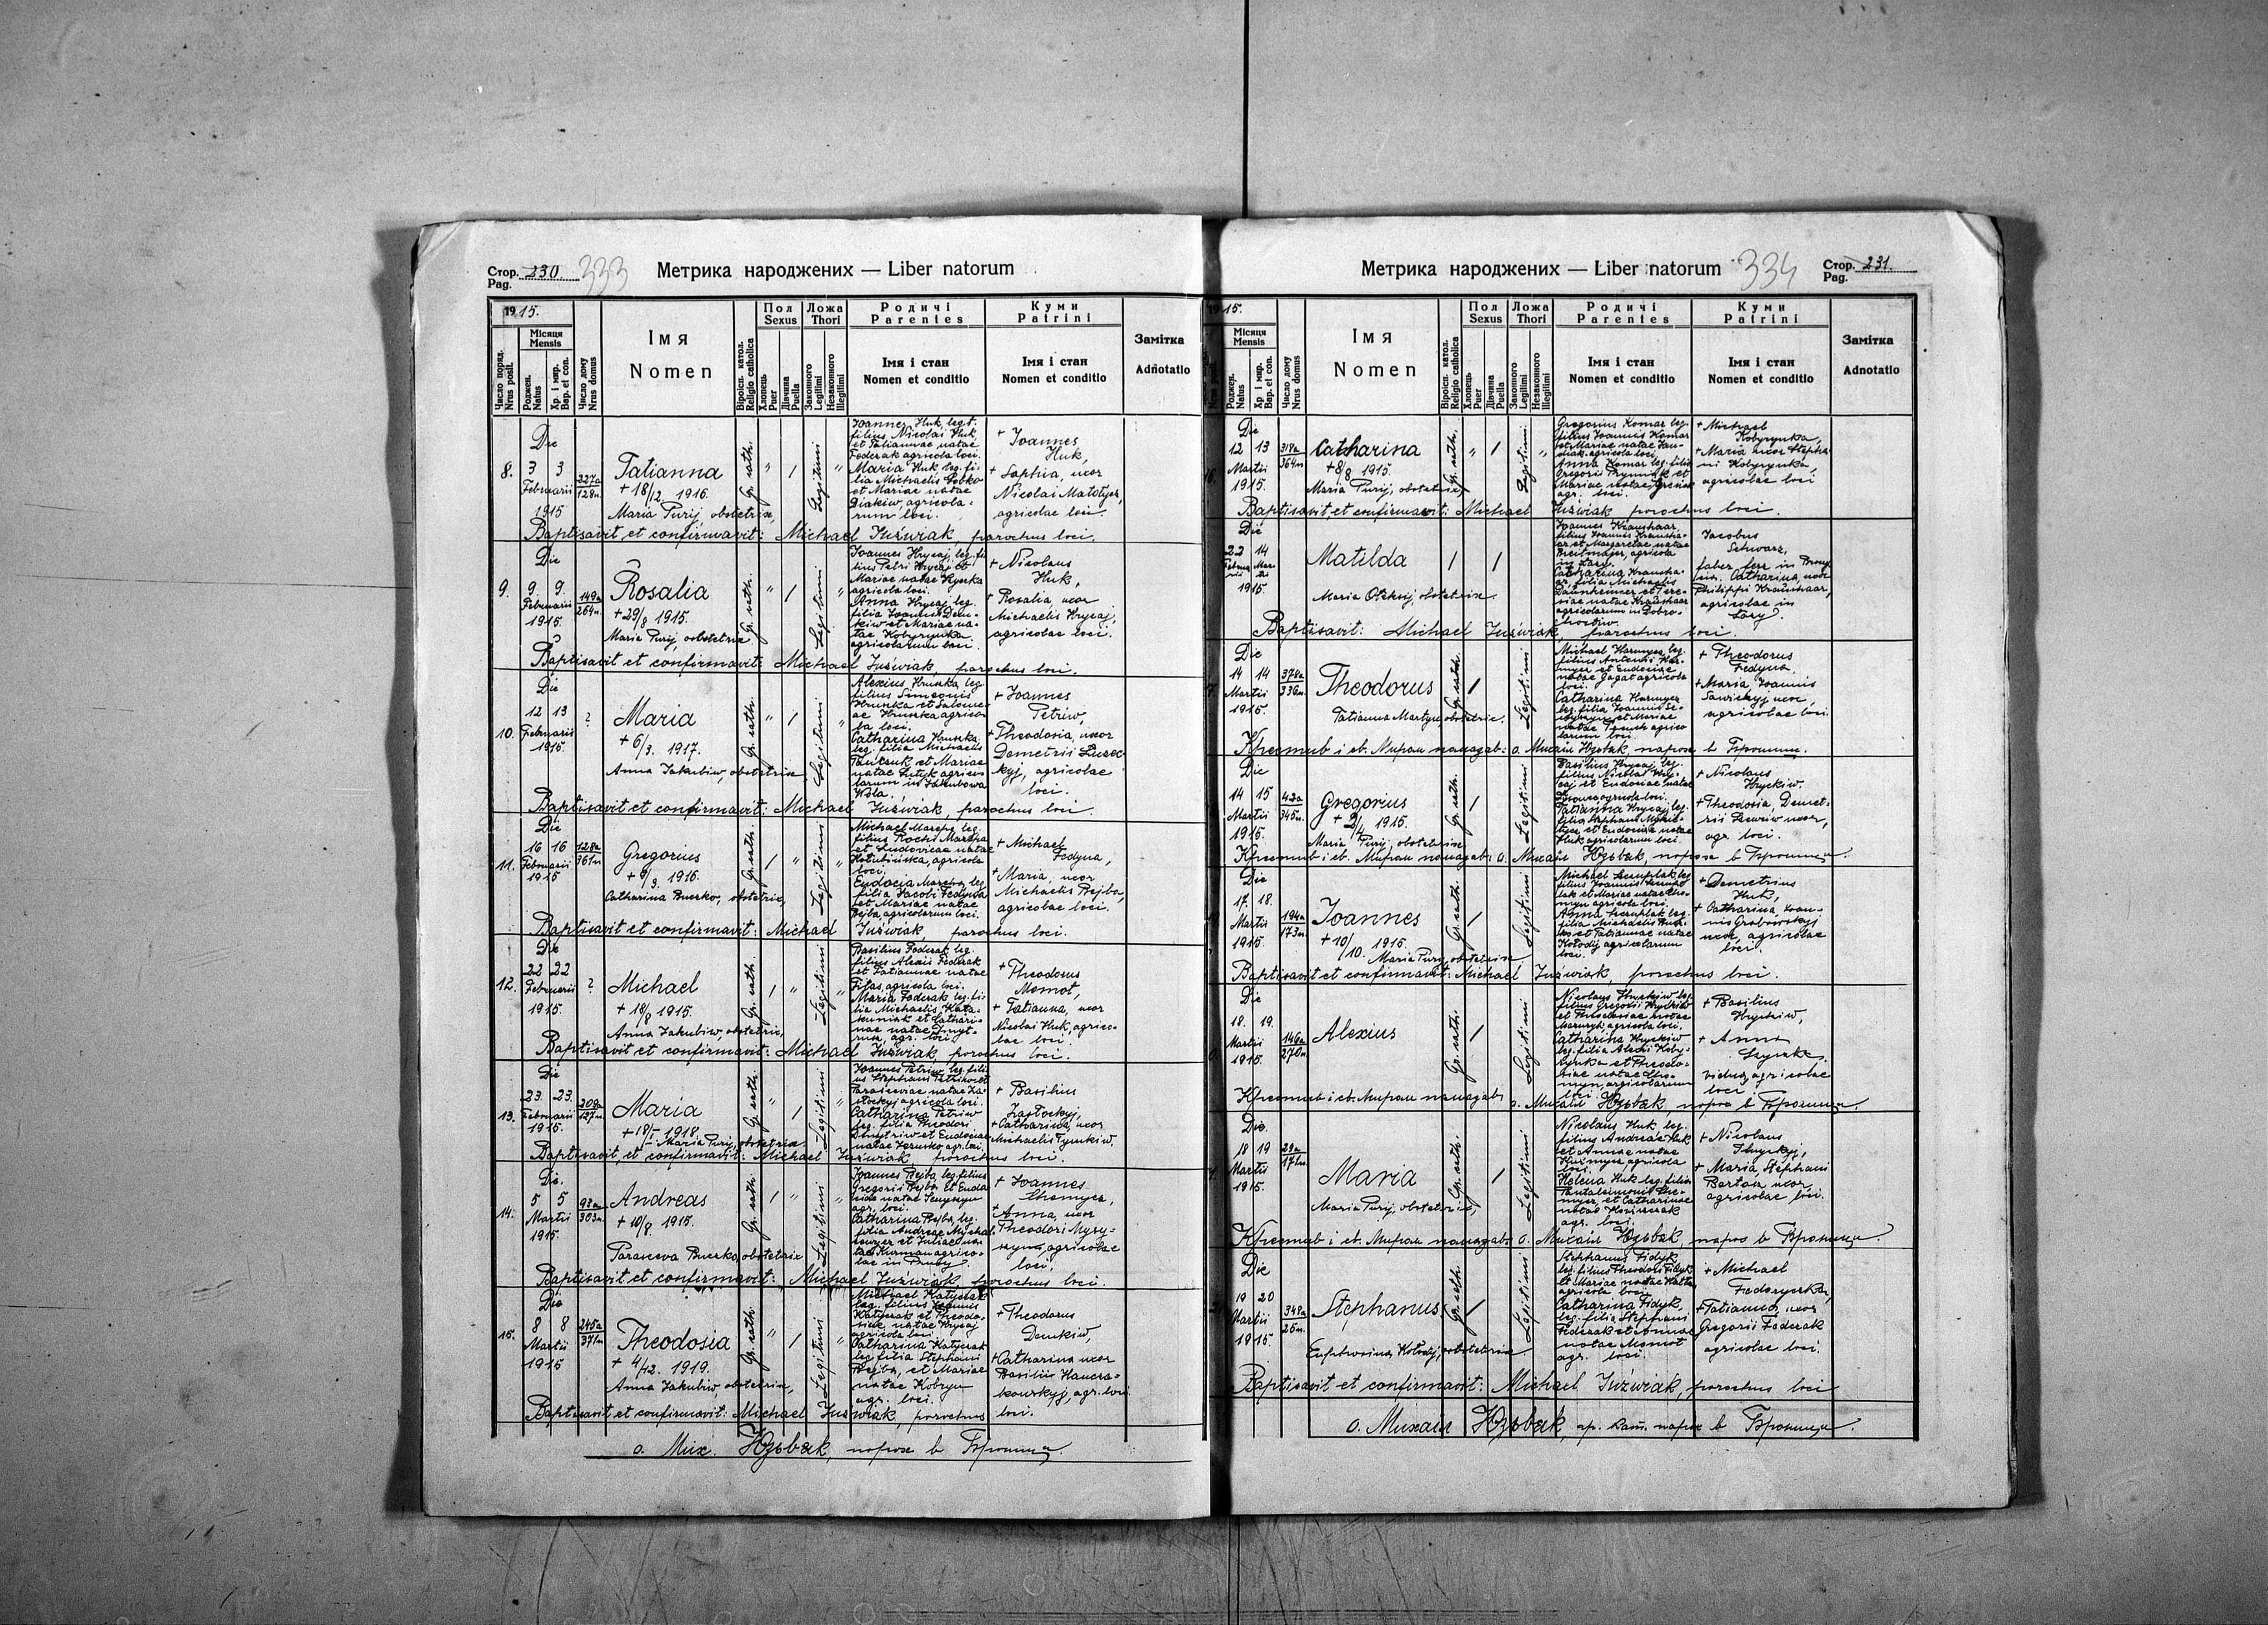 Стор. 230. 333
Pag.
Метрика народжених — Liber natorum
1915.
Число поряд.
Nrus posit.
Місяця
Mensis
Роджен.
Natus
Хр. і мир.
Bap. et con.
Число дому
Nrus domus
Імя
Nomen
Віросп. катол.
Religio catholica
Пол
Sexus
Хлопець
Puer
Дівчина
Puella
Ложа
Thori
Законного
Legitimi
Незаконного
Illegitimi
Родичі
Parentes
Імя і стан
Nomen et conditio
Куми
Patrini
Імя і стан
Nomen et conditio
Замітка
Adnotatio
8.
Die
3 3
Februarii
1915
227a
128n.
Tatianna
+ 18/12 1916.
Maria Puryj, obstetrix,
Gr. cath.
" / Legitimi "
Joannes Huk, legt.
filius Nicolai Huk
et Tatiannae natae
Federak agricola loci.
Maria Huk leg. fi-
lia Michaelis Bobko
et Mariae natae
Diakiw, agricola-
rum loci.
+ Joannes
Huk,
+ Sophia, uxor
Nicolai Matotycz,
agricolae loci.
Baptisavit et confirmavit: Michael Juźwiak, parochus loci.
9.
Die
9. 9.
Februarii
1915
149a
264n.
Rosalia
+ 29/8 1915.
Maria Puryj, obstetrix
Gr. cath.
" / Legitimi "
Joannes Hrycaj, leg. fi-
lius Petri Hrycaj et
Mariae natae
agricola loci.
Anna Hrycaj leg.
filia Joannis Dem-
kiw et Mariae na-
tae Kobyrynka
agricolarum loci.
+ Nicolaus
Huk,
+ Rosalia uxor
Michaelis Hrycaj,
agricolae loci.
Baptisavit et confirmavit: Michael Juźwiak, parochus loci.
10.
Die
12 13
Februarii
1915
?
Maria
+ 6/3. 1917.
Anna Jakubiw, obstetrix
Gr. cath.
" / Legitimi "
Alexius Hruska leg.
filius Simeonis
Hruska et Salome-
ae Hruska agrico-
la loci.
Catharina Hruska,
leg. filia Michaelis
et Mariae
natae agrico-
larum in Jakubowa
Wola.
+ Joannes
Petriw,
+ Theodosia, uxor
Demetrii
agricolae
loci.
Baptisavit et confirmavit: Michael Juźwiak, parochus loci.
11.
Die
16 16
Februarii
1915
128a
361n
Gregorius
+ 9/3. 1916.
Catharina Buczko, obstetrix,
Gr. cath.
/ " Legitimi "
Michael leg.
filius Rochi
et Ludovicae natae
agricola
loci.
Eudocia leg.
filia Jacobi Fedyna
et Mariae natae
Rejba, agricolarum loci.
+ Michael
Fedyna,
+ Maria, uxor
Michaelis Rejba,
agricolae loci.
Baptisavit et confirmavit: Michael Juźwiak parochus loci.
12.
Die
22 22
Februarii
1915.
?
Michael
+ 18/8 1915.
Anna Jakubiw, obstetrix,
Gr. cath.
/ " Legitimi "
Basilius Federak leg.
filius Alexii Federak
et Tatiannae natae
Fifas, agricola loci.
Maria Federak leg. fi-
lia Michaelis
et Cathari-
nae natae
agr. loci
+ Theodorus
Momot,
+ Tatianna, uxor
Nicolai Huk, agrico-
lae loci
Baptisavit et confirmavit: Michael Juźwiak, parochus loci.
13.
Die
23. 23.
Februarii
1915.
208a
127n.
Maria
+ 18/I 1918
Maria Puryj, obstetrix.
Gr. cath.
" / Legitimi "
Joannes Petriw, leg. fili-
us Stephani et
Parasceviae natae Za-
stockyj agricola loci.
Catharina Petriw
leg. filia Theodori
Dmytriw et Eudociae
natae agr. loci.
+ Basilius
Zastockyj,
+ Catharina, uxor
Michaelis Tymkiw,
Baptisavit, et confirmavit: Michael Juźwiak, parochus loci.
14.
Die.
5 5
Martii
1915.
93a
303n.
Andreas
+ 10/8. 1915.
Parasceva Buczko, obstetrix
Gr. cath.
/ " Legitimi "
Joannes Rejba, leg. filius
Gregorii Rejba et Eudo-
ciae natae
agr. loci.
Catharina Rejba, leg.
filia Andreae
et Juliae na-
tae agrico-
lae in
+ Joannes
+ Anna, uxor
Theodori
agricolae
loci,
Baptisavit et confirmavit: Michael Juźwiak, parochus loci.
15.
Die
8 8
Martii
1915
245a
371n
Theodosia
+ 4/12. 1919.
Anna Jakubiw, obstetrix,
Gr. cath.
" / Legitimi "
Michael
leg. filius Joannis
et Theodo-
siae natae Hrycaj
agricola loci.
Catharina
leg. filia Stephani
Rejba, et Mariae
natae Kobryn
agr. loci.
+ Theodorus
Demkiw,
+ Catharina uxor
Basilii
agr. loci
Baptisavit et confirmavit: Michael Juźwiak, parochus loci.
о. Мих. Юзьвяк, парох в Брониця.
Метрика народжених — Liber natorum
334 Стор. 231.
Pag.
1915.
Місяця
Mensis
Роджен.
Natus
Хр. і мир.
Bap. et con.
Число дому
Nrus domus
Імя
Nomen
Віросп. катол.
Religio catholica
Пол
Sexus
Хлопець
Puer
Дівчина
Puella
Ложа
Thori
Законного
Legitimi
Незаконного
Illegitimi
Родичі
Parentes
Імя і стан
Nomen et conditio
Куми
Patrini
Імя і стан
Nomen et conditio
Замітка
Adnotatio
Die
12 13
Martii
1915.
318a
364n
Catharina
+ 8/8 1915.
Maria Puryj, obstetrix,
Gr. cath.
" / Legitimi "
Gregorius Komar leg.
filius Joannis Komar
et Mariae natae
agricola loci.
Anna Komar leg. filia
Gregorii et
Mariae natae
agr. loci.
+ Michael
Kobyrynka,
+ Maria uxor Stepha-
ni Kobyrynka,
agricolae loci
Baptisavit et confirmavit: Michael Juźwiak parochus loci.
Die
22 14
Februarii Martii
1915.
Matilda
Maria obstetrix.
/ /
Joannes Kraushaar,
filius Joannis Krausha-
ar et Margaretae natae
agricola
in
Catharina Krausha-
ar, filia Michaelis
et Tere-
siae natae Kraushaar
agricolarum in Dobro-
hostiw.
Jacobus
Schwarz,
faber ferr. in
Catharina, uxor
Philippi Kraushaar,
agricolae in
Baptisavit: Michael Juźwiak, parochus loci.
Die
14 14
Martii
1915.
378a
336n.
Theodorus
Tatianna Martyn, obstetrix.
Gr. cath.
/ Legitimi
Michael leg.
filius Antonii
et Eudociae
natae agricola
loci.
Catharina
leg. filia Joannis
et Mariae
natae agrico-
larum loci.
+ Theodorus
Fedyna,
+ Maria Joannis
Sawickyj uxor,
agricolae loci.
Крестив і св. Миром помазав: о. Михаіл Юзьвяк, парох в Брониця.
Die
14 15
Martii
1915.
42a
345n.
Gregorius
+ 2/4 1915.
Maria Puryj, obstetrix
Gr. cath.
/ Legitimi
Basilius Hrycaj leg.
filius Nicolai Hry-
caj et Eudociae natae
agricola loci.
Tatianna Hrycaj leg.
filia Stephani
et Eudociae natae
Huk agricolarum loci.
+ Nicolaus
Hryckiw.
+ Theodosia, Demet-
rii uxor,
agr. loci.
Крестив і св. Миром помазав: о. Михаіл Юзьвяк, парох в Брониця.
Die
17. 18.
Martii
1915.
194a
173n.
Joannes
+ 10/10. 1915.
Maria Puryj, obstetrix
Gr. cath.
/ Legitimi
Michael leg.
filius Joannis
et Mariae natae
agricola loci.
Anna leg.
filia Michaelis
et Tatiannae natae
Kołodij agricolarum
loci.
+ Demetrius
Huk,
+ Catharina, Joan-
nis Grabowskyj
uxor, agricolae
loci.
Baptisavit et confirmavit: Michael Juźwiak, parochus loci.
Die
18. 19.
Martii
1915.
146a
270n.
Alexius
Gr. cath.
/ Legitimi
Nicolaus Hryckiw leg.
filius Gregorii Hryckiw
et Theodosiae natae
agricola loci.
Catharina Hryckiw
leg. filia Alexii Koby-
rynka et Theodo-
siae natae
agricolarum
loci.
+ Basilius
Hryckiw,
+ Anna
vidua, agricolae
loci
Крестив і св. Миром помазав о. Михаіл Юзьвяк, парох в Брониця.
Die.
18 19
Martii
1915.
29a
171n.
Maria
Maria Puryj, obstetrix,
Gr. cath.
/ Legitimi
Nicolaus Huk leg.
filius Andreae Huk
et Annae natae
agricola
loci.
Helena Huk leg. filia
Pantaleimonis
et Catharinae
natae
agr. loci.
+ Nicolaus
+ Maria Stephani
Bartan uxor,
agricolae loci.
Крестив і св. Миром помазав о. Михаіл Юзьвяк, парох в Брониця.
Die
19 20
Martii
1915.
348a
25n.
Stephanus
Euphrosina Kołodij, obstetrix
Gr. cath.
/ Legitimi
Stephanus Fidyk
leg. filius Theodori Fidyk
et Mariae natae
agricola loci.
Catharina Fidyk,
leg. filia Stephani
Federak et Annae
natae Momot
agr. loci.
+ Michael
+ Tatianna, uxor
Gregorii Federak
agricolae loci.
Baptisavit et confirmavit: Michael Juźwiak, parochus loci
о. Михаіл Юзьвяк, гр. кат. парох в Брониця.